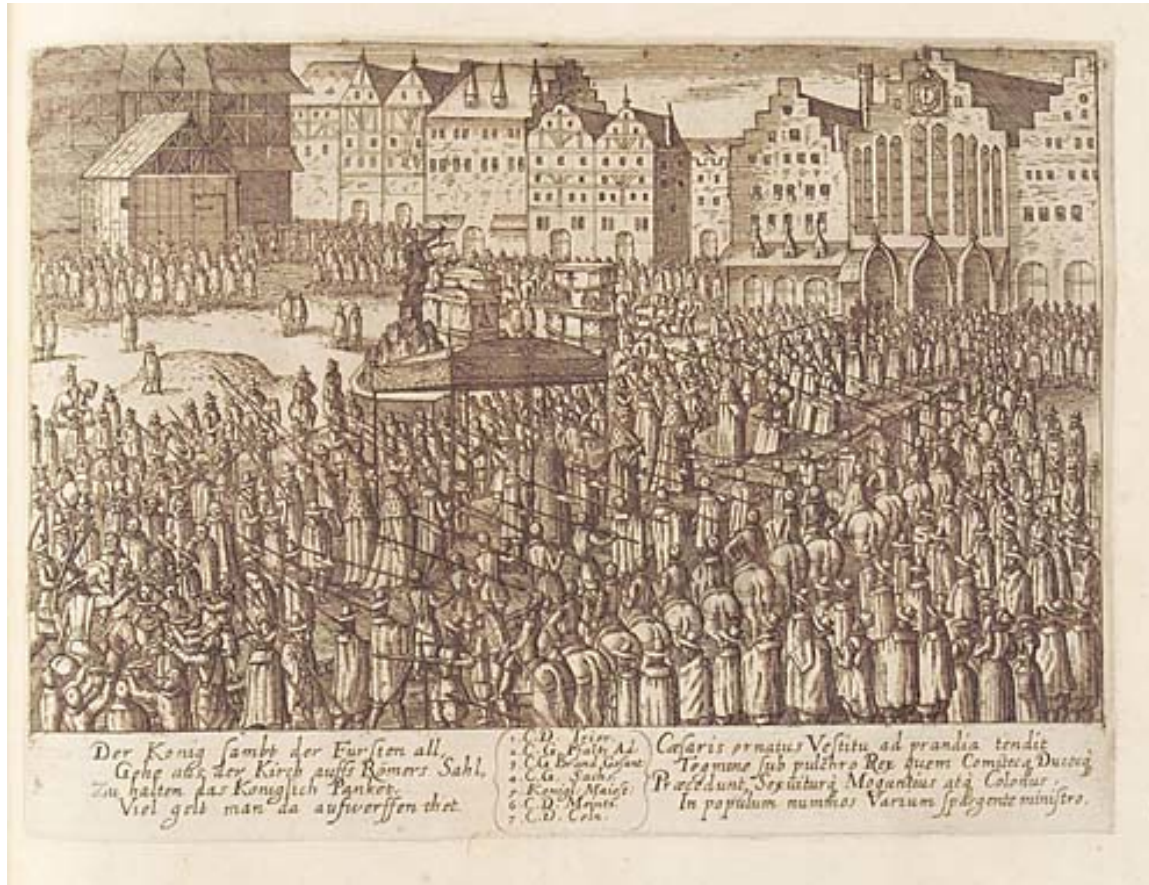 Der König sambt der Fursten all,
Gehe aus der Kirch auffs Römers Sahl,
Zu halten das Königlich Panket.
Viel gelt man da aufwerffen thet.
1. C.D. Trier.
2. C.G. Pfaltz Ad.
3. C.G. Brand. Gesant.
4. C.G. Sachs.
5. Königl. Maiest.
6. C.D. Meyntz.
7. C.D. Coln.
Cæsaris ornatus Vestitu ad prandia tendit
Tegmine sub pulchro Rex quem Comitesq, Ducesq,
Præcedunt, Sequiturq Moguntius atq Colonus,
In populum nummos Varium spargente ministro.